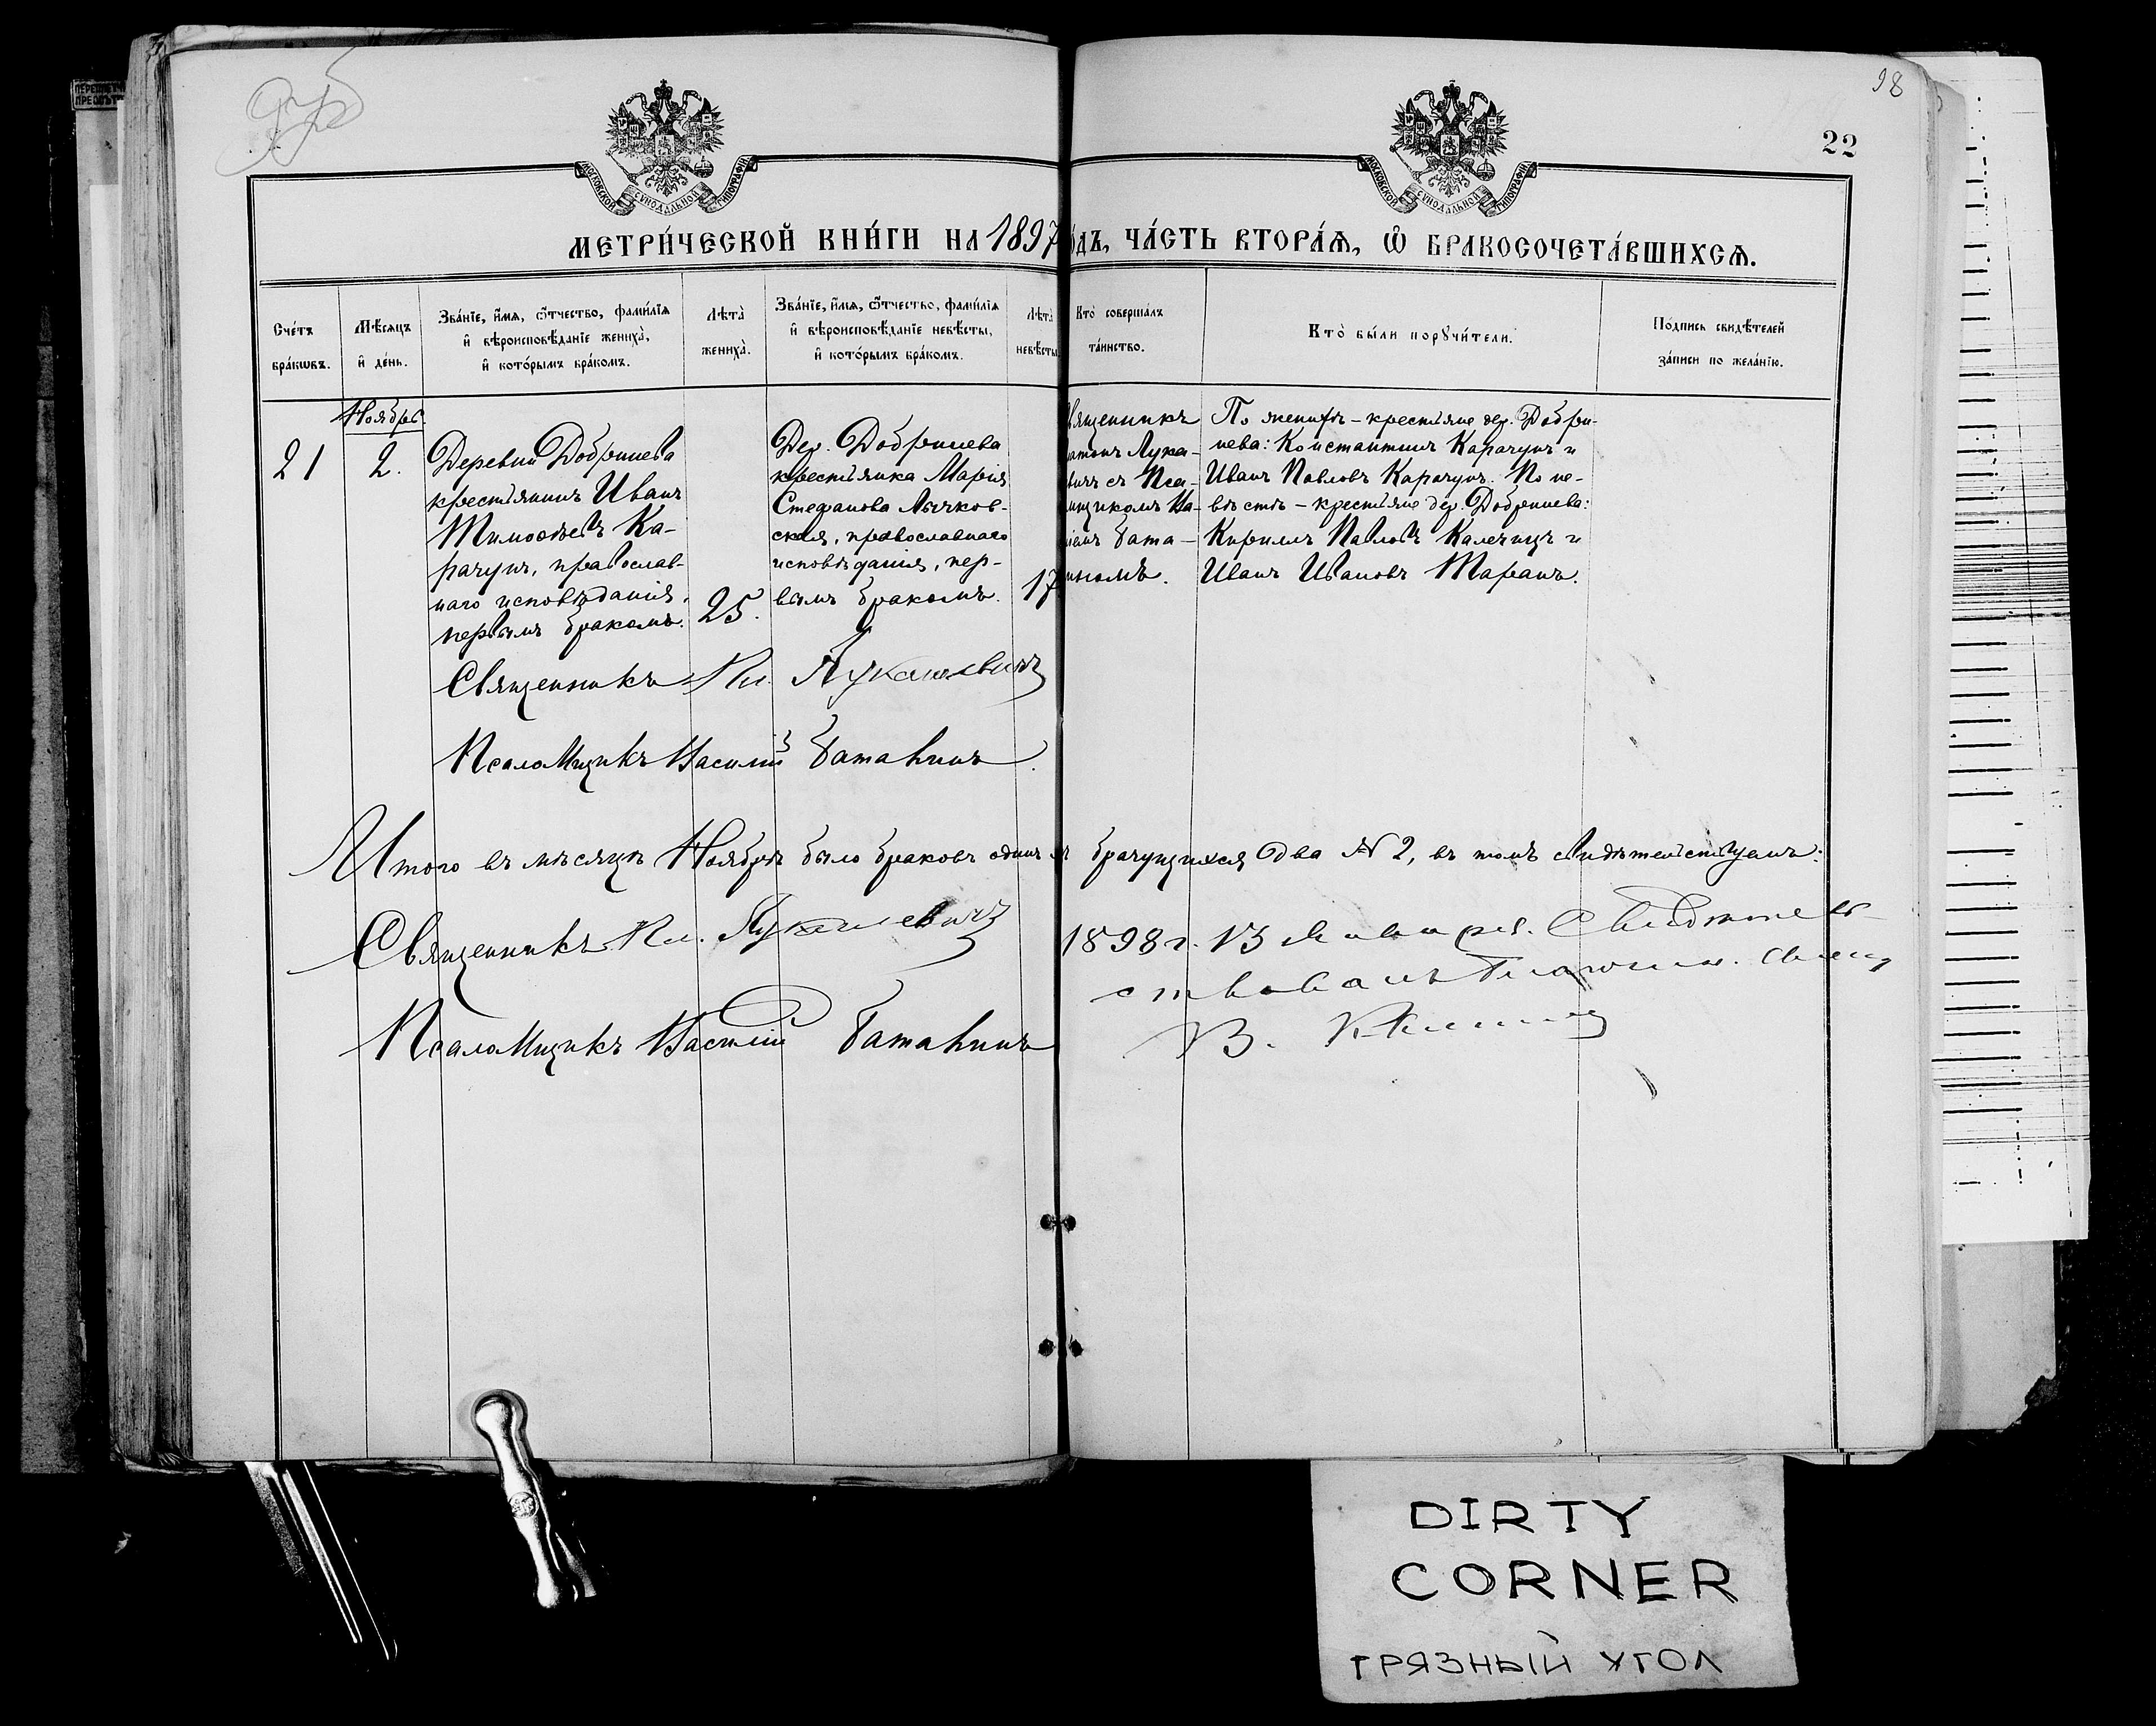 98
22
МОСКОВСКОЙ СѴНОДАЛЬНОЙ ТИПОГРАФІИ
МОСКОВСКОЙ СѴНОДАЛЬНОЙ ТИПОГРАФІИ
МЕТРИ́ЧЕСКОЙ КНИ́ГИ НА 1897
ОДЪ, ЧА́СТЬ ВТОРА́Я, Ѡ҆ БРАКОСОЧЕТА́ВШИХСЯ.
Сче́тъ
бра́кѡвъ.
Мѣ́сяцъ
и҆ де́нь.
Зва́нїе, и҆́мя, ѻ҆́тчество, фами́лїя
и҆ вѣроисповѣ́данїе жениха̀,
и҆ кото́рымъ бра́комъ.
Лѣта̀
жениха̀.
Зва́нїе, и҆́мя, ѻ҆́тчество, фами́лїя
и҆ вѣроисповѣ́данїе невѣ́сты,
и҆ кото́рымъ бра́комъ.
Лѣта̀
невѣ́сты
Кто̀ соверша́лъ
та́инство.
Кто̀ бы́ли порꙋчи́тели.
По́дпись свидѣ́телей
за́писи по жела́нїю.
Ноябрь
21
2.
Деревни Добринева
крестьянинъ Иванъ
Тимоѳеевъ Ка-
рачунъ, православ-
наго исповѣданія,
первымъ бракомъ.
25.
Дер. Добринева
крестьянка Марія
Стефанова Лычков-
ская, православнаго
исповѣданія, пер-
вымъ бракомъ.
17
вященникъ
атонъ Лука-
вичъ съ Пса-
мщикомъ Ва-
ліемъ Бата-
иномъ.
По женихѣ – крестьяне дер. Добри-
нева: Константинъ Карачунъ и
Иванъ Павловъ Карачунъ. По не-
вѣстѣ – крестьяне дер. Добринева:
Кириллъ Павловъ Калечицъ и
Иванъ Ивановъ Таранъ.
Священникъ Пл. Лукашевичъ
Псаломщикъ Василій Батавинъ.
Итого въ мѣсяцѣ Ноябрѣ было браковъ одинъ брачущихся два № 2, въ томъ свидѣтельствуемъ:
Священникъ Пл. Лукашевичъ
Псаломщикъ Василій Батавинъ
1898 г. 13 Января. Свидѣтель-
ствовалъ Благочин. Свящ
В.
DIRTY
CORNER
ГРЯЗНЫЙ УГОЛ